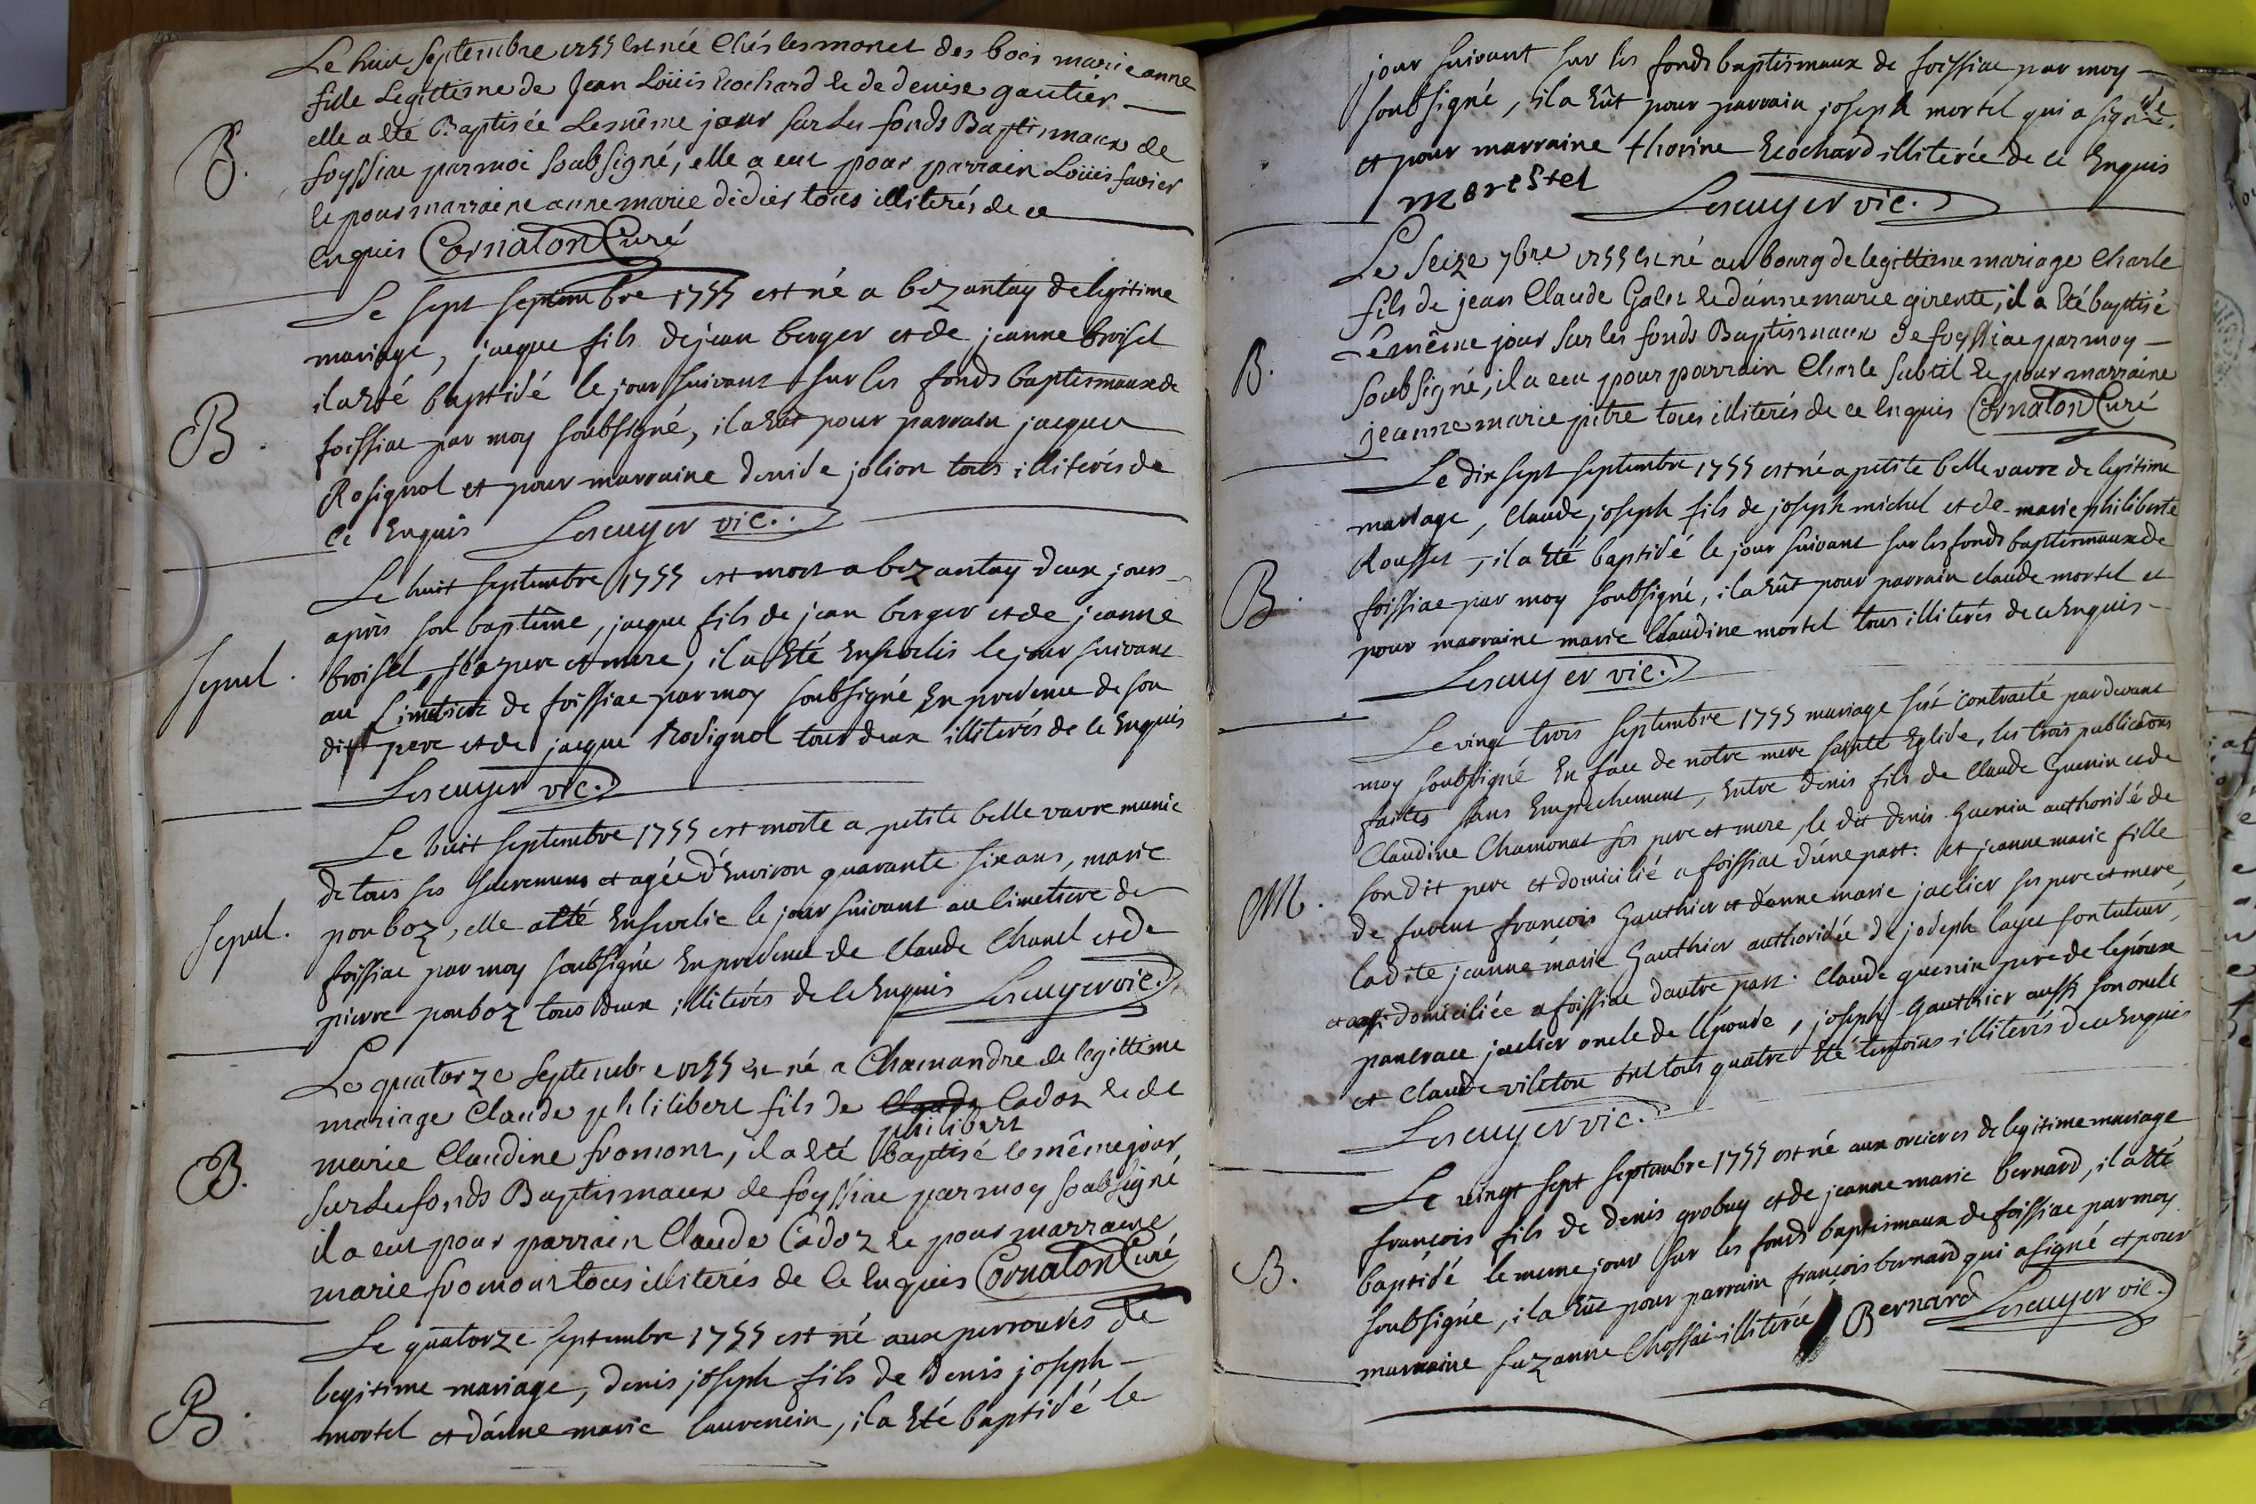 Le huit septembre 1755 est née Chés les monet des bois marie anne
fille Legittime de Jean Loüis Ecochard et de denise gautier
B. elle a eté Baptisée Le même jour sur Les fonds Baptismaux de
foyssiac par moi soubsigné, elle a eut pour parrain Loüis favier
et pour marraine anne marie didier tous illiterés de ce
Enquis Cornaton Curé
Le sept septembre 1755 est né a bezantay de legitime
mariage, jacque fils de jean berger et de jeanne broisel
il a Eté baptisé le jour suivant sur les fonds baptismaux de
B. foissiac par moy soubsigné, il a Eüt pour parrain jacques
Rosignol et pour marraine denise jolion tous illiterés de
ce Enquis Lescuyer vic.
Le huit septembre 1755 est mort a bezantay deux jours
après son baptême, jacque fils de jean berger et de jeanne
sepul. broisel, ses pere et mere, il a Eté Ensevelis le jour suivant
au Cimetiere de foissiac par moy soubsigné En presence de son
dit pere et de jacque Rosignol tous deux illiterés de ce Enquis
Lescuyer vic.
Le huit septembre 1755 est morte a petite belle vavre munie
de tous ses sacremens et agée d'Environ quarante six ans, marie
sepul. ponboz, elle a Eté Ensevelie le jour suivant au Cimetiere de
foissiac par moy soubsigné En presence de Claude Chanel et de
pierre ponboz tous deux illiterés de ce Enquis Lescuyer vic.
Le quatorze septembre 1755 est né a Chamandre de legittime
mariage Claude philibert fils de Claude Cadoz et de
philibert
B. marie Claudine fromont, il a eté baptisé le même jour
sur Les fonds Baptismaux de foyssiac par moy soubsigné
il a eut pour parrain Claude Cadoz et pour marraine
marie fromont tous illiterés de Ce Enquis Cornaton Curé
Le quatorze septembre 1755 est né aux perrouses de
legitime mariage, denis joseph fils de denis joseph
B. mortel et d'anne marie laurencin, il a Eté baptisé le
jour suivant sur les fonds baptismaux de foissiac par moy
soubsigné, il a Eût pour parrain joseph mortel qui a signé
et pour marraine Ecochard illiterée de ce Enquis
morestel Lescuyer vic.
Le Seize 7bre 1755 est né au bourg de legittime mariage Charle
fils de jean Claude Galet et d'anne marie girente, il a eté baptisé
B. Le même jour sur les fonds Baptismaux de foyssiac par moy
soubsigné, il a eu pour parrain Charle subtil et pour marraine
jeanne marie pitre tous illiterés de ce Enquis Cornaton Curé
Le dix sept septembre 1755 est né a petite belle vavre de legitime
mariage, Claude joseph fils de joseph michel et de marie philiberte
Rousset, il a Eté baptisé le jour suivant sur les fonds baptismaux de
B. foissiac par moy soubsigné, il a Eût pour parrain claude mortel et
pour marraine marie Claudine mortel tous illiterés de ce Enquis
Lescuyer vic.
Le vingt trois septembre 1755 mariage fût contracté pardevant
moy soubsigné En face de notre mere sainte Eglise, les trois publications
faites sans Empechement, Entre denis fils de Claude Guenin et de
Claudine Chamonat ses pere et mere, le dit denis Guenin authorisé de
M. son dit pere et domicilié a foissiac d'une part. et jeanne marie fille
de furent françois Gauthier et d'anne marie jaclier ses pere et mere,
la dite jeanne marie Gauthier authorisée de joseph laye son tuteur,
et aussi domiciliée a foissiac d'autre part. Claude guenin pere de lepoux
pancrace jaclier oncle de l'Epouse, joseph Gauthier aussi son oncle
et Claude vileton ont tous quatre Eté temoins illiterés de ce Enquis
Lescuyer vic.
Le vingt sept septembre 1755 est né aux orcieres de legitime mariage
françois fils de denis grobuy et de jeanne marie bernard, il a Eté
baptisé le meme jour sur les fonds baptismaux de foissiac par moy
B. soubsigné, il a Eût pour parrain françois bernard qui a signé et pour
marraine suzanne Chossai illiterée Bernard Lescuyer vic.